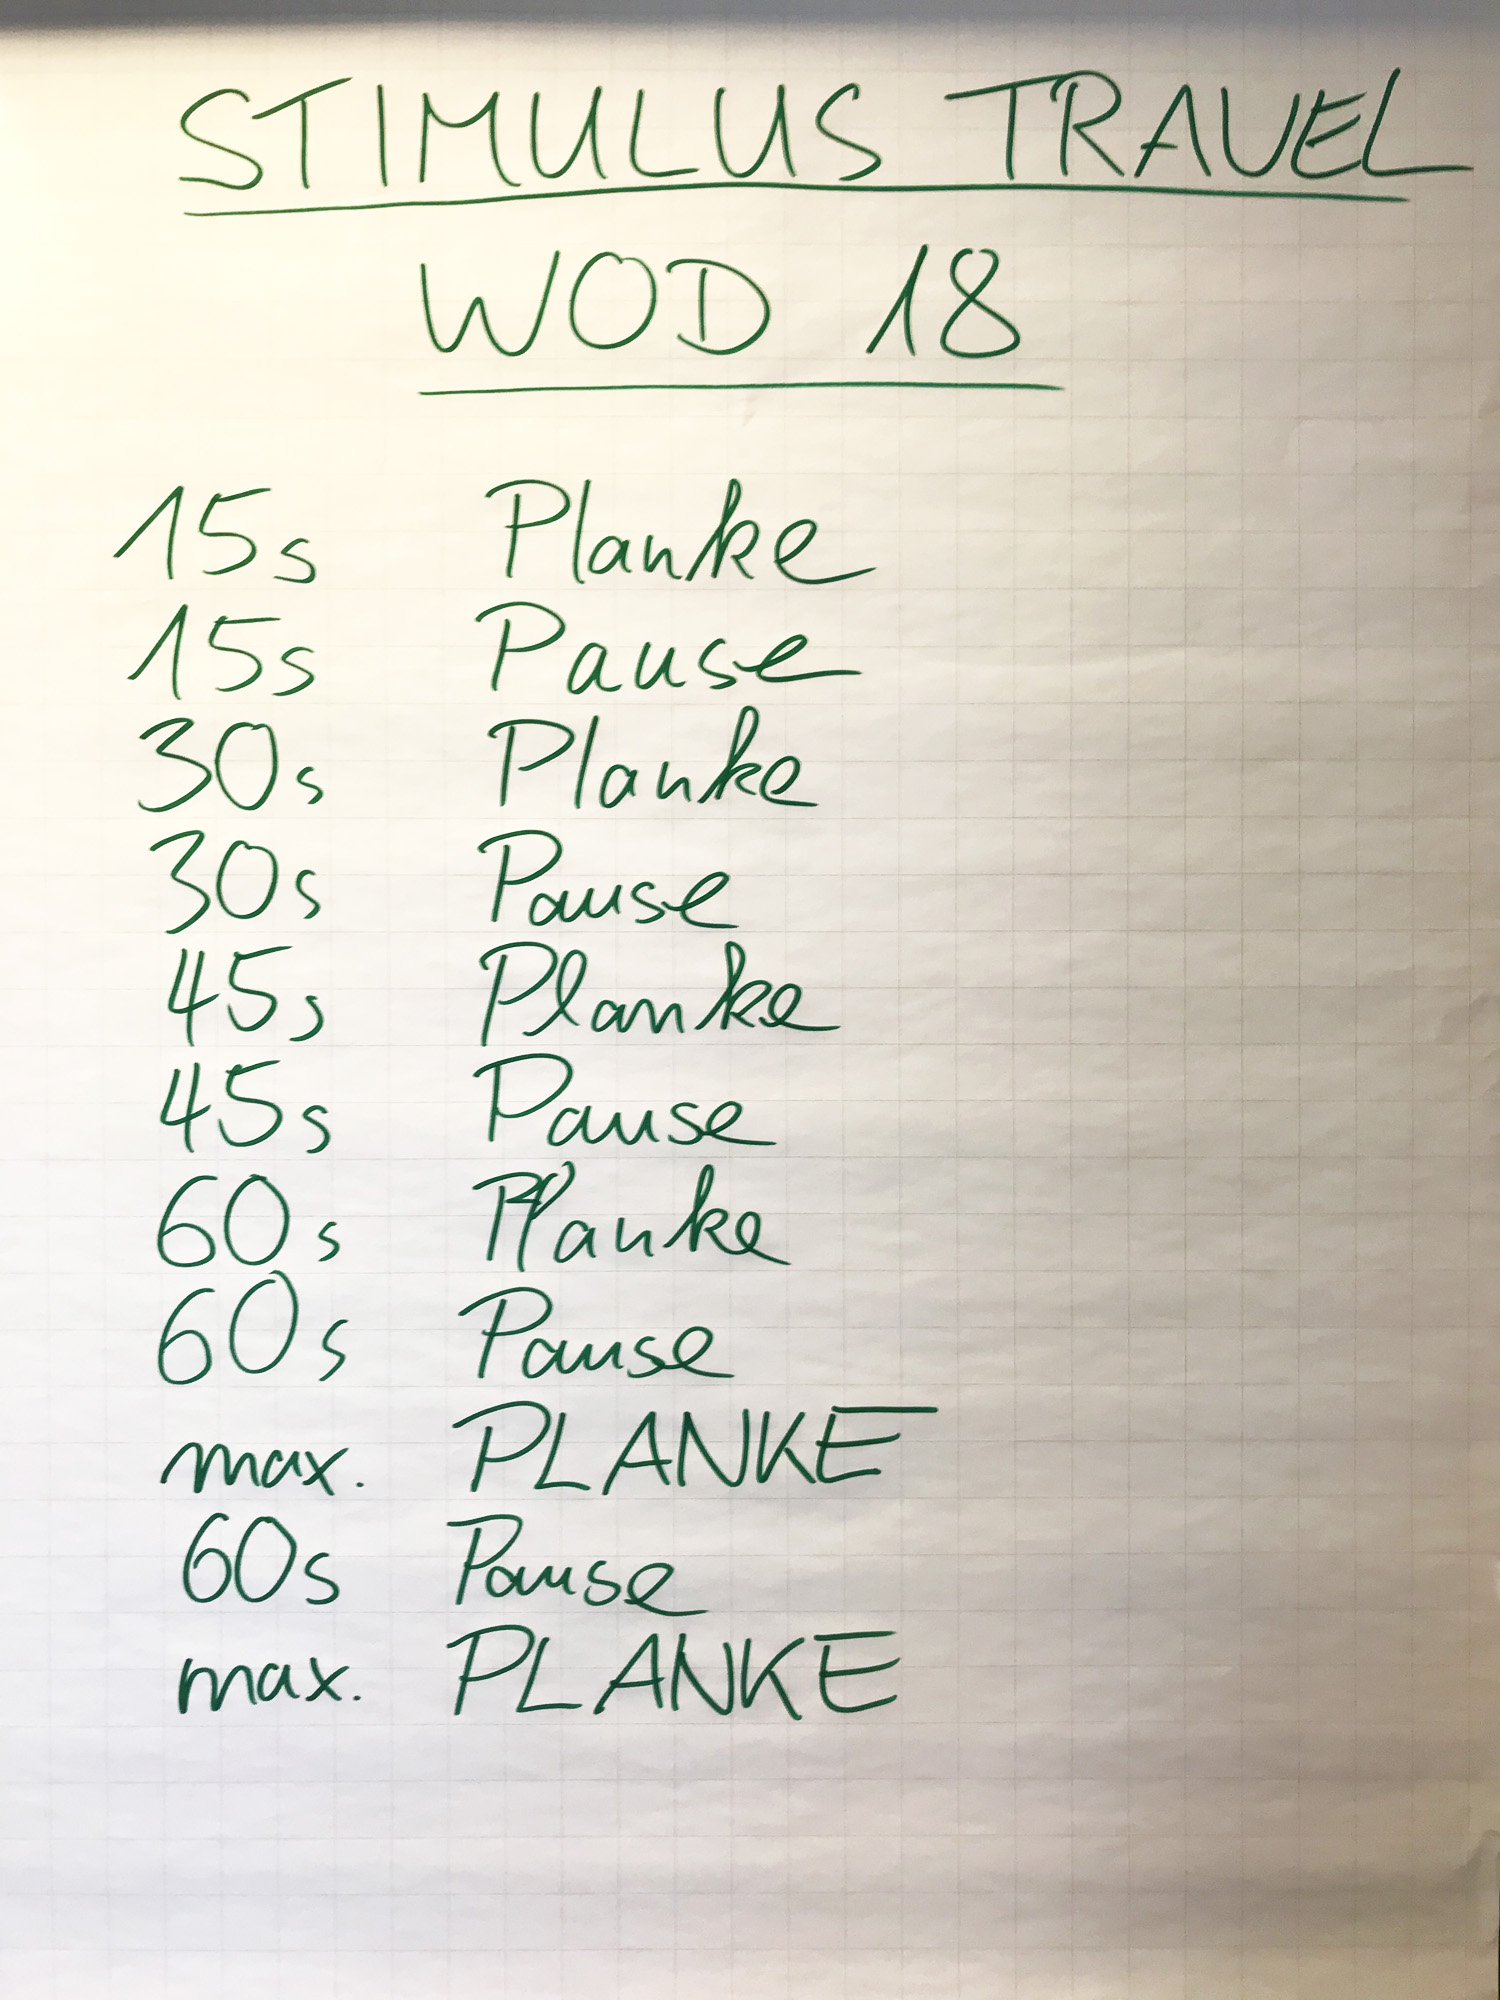 STIMULUS TRAVEL
WOD 18
15s Planke
15s Pause
30s Planke
30s Pause
45s Planke
45s Pause
60s Planke
60s Pause
max. PLANKE
60s Pause
max. PLANKE